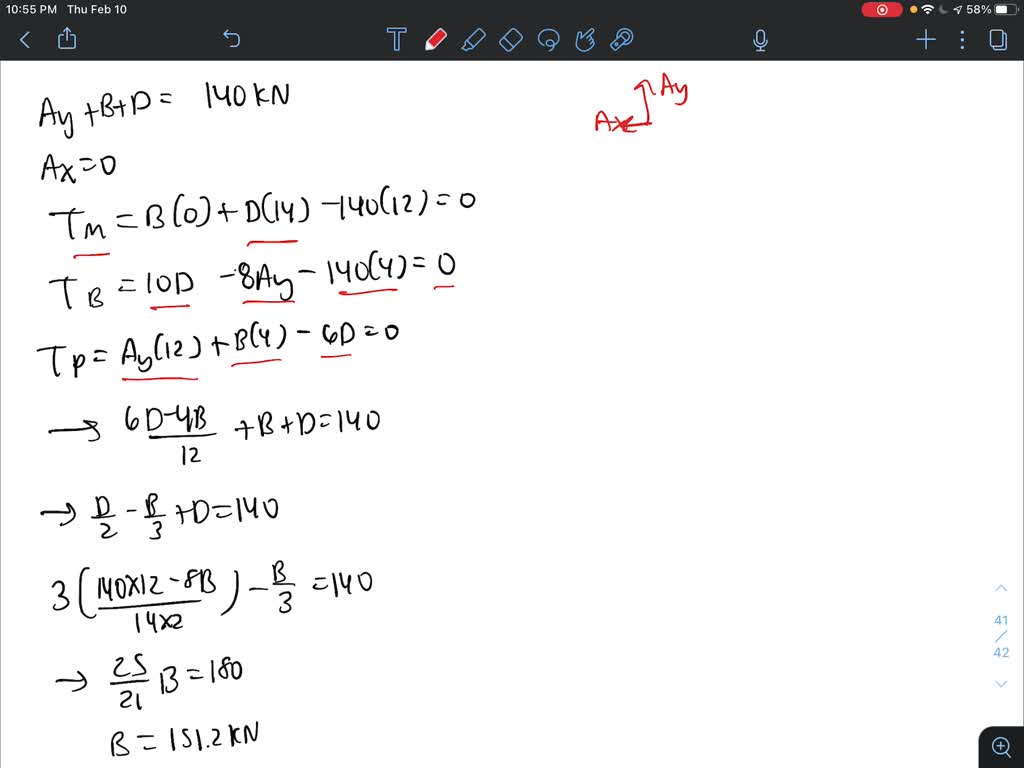 10:55 PM Thu Feb 10
58%
Ay + B + D = 140 kN
Ay
Ax
Ax = 0
Tm = B(0) + D(14) - 140(12) = 0
TB = 10D - 8Ay - 140(4) = 0
Tp = Ay(12) + B(4) - 6D = 0
→ (6D - 4B)/12 + B + D = 140
→ D/2 - B/3 + D = 140
3((140×12 - 8B)/(14×2)) - B/3 = 140
→ 25/21 B = 180
B = 151.2 kN
41
/
42